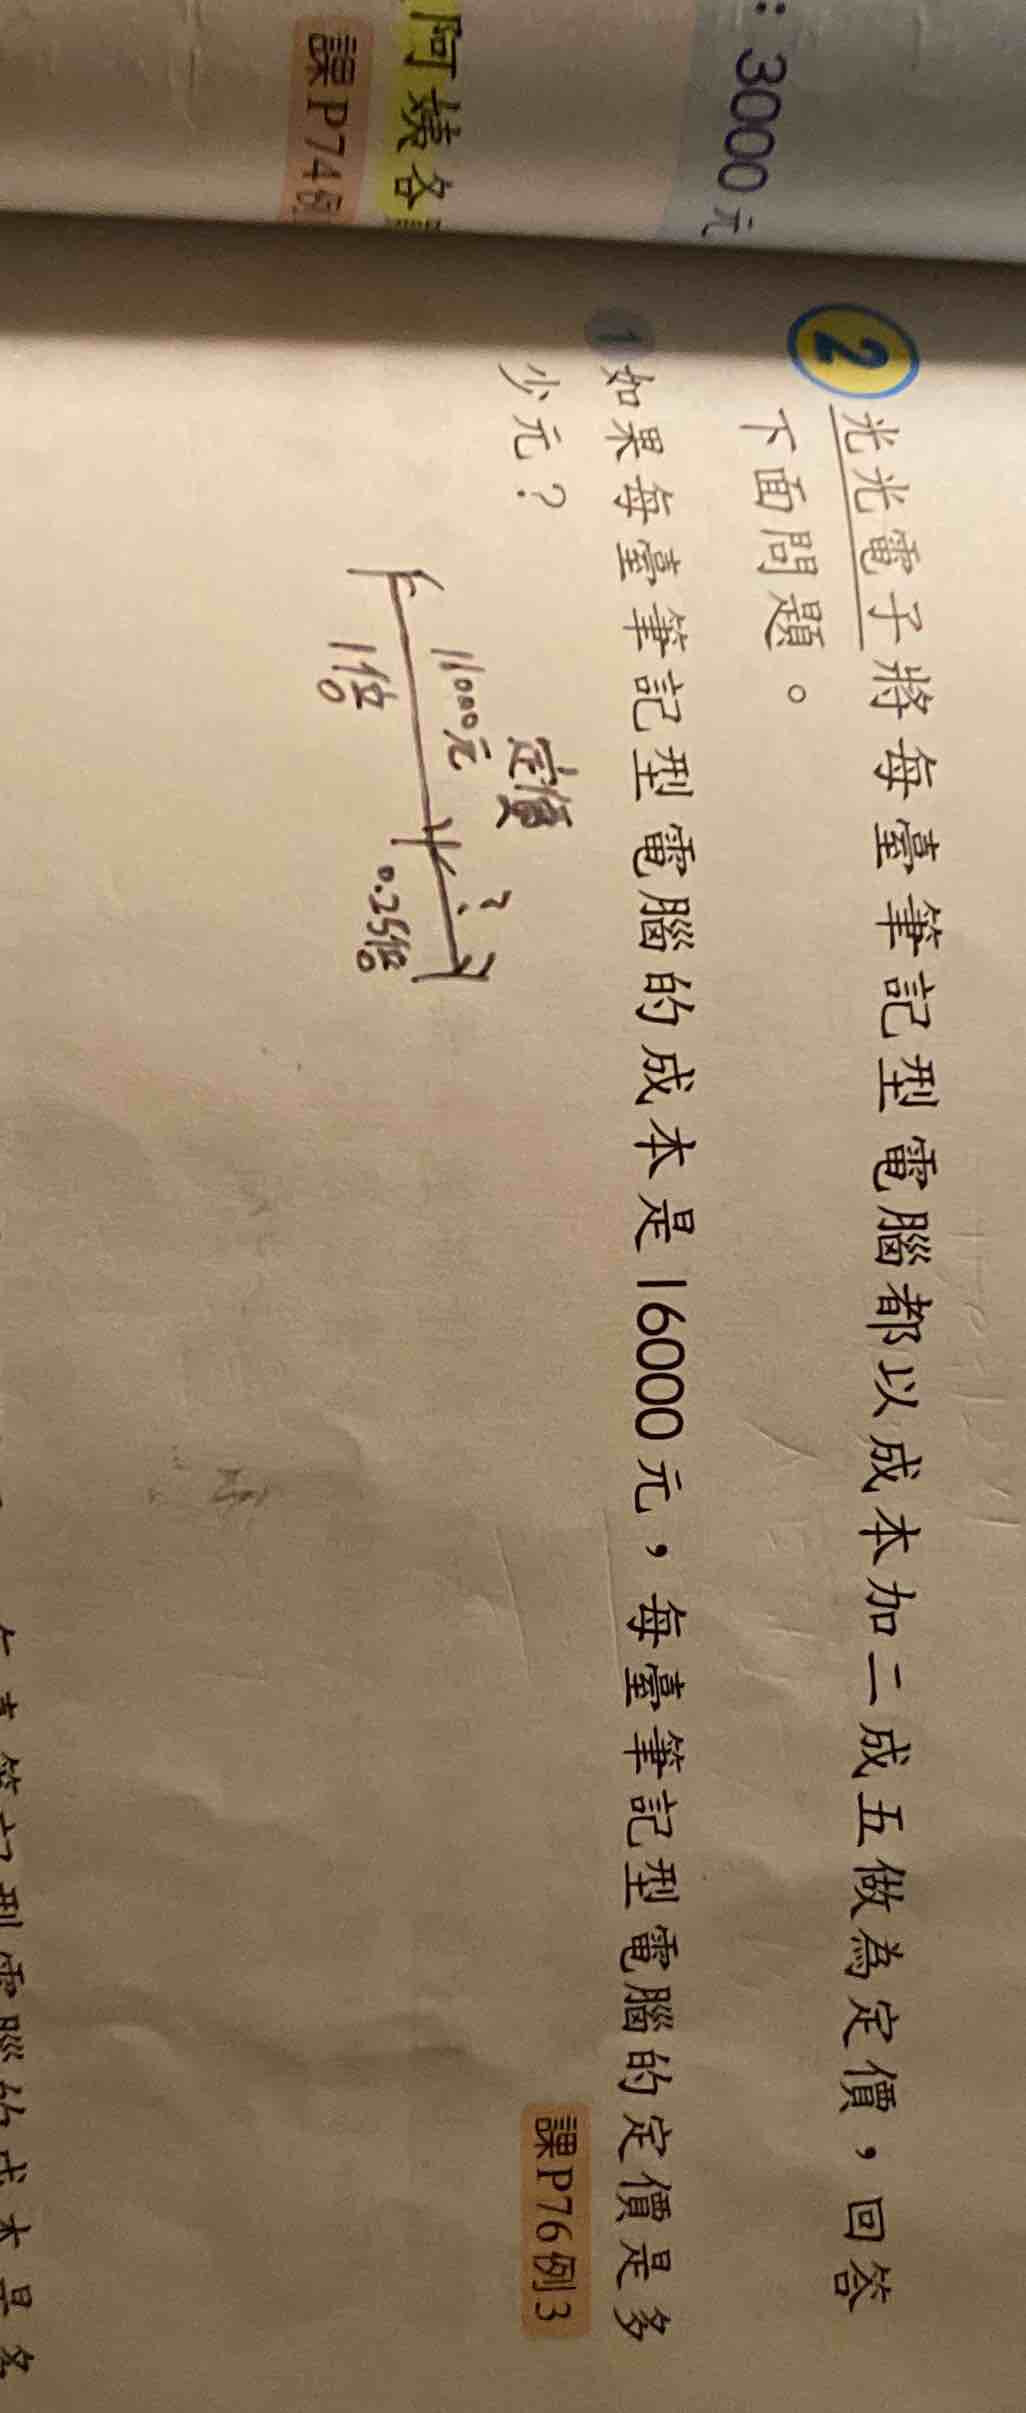 ：3000元
阿嬤各
課P74例
2 光光電子將每臺筆記型電腦都以成本加二成五做為定價，回答
下面問題。
1 如果每臺筆記型電腦的成本是16000元，每臺筆記型電腦的定價是多
少元？
課P76例3
定價
11000元
?
1倍
0.25倍
筆記型電腦的成本是多